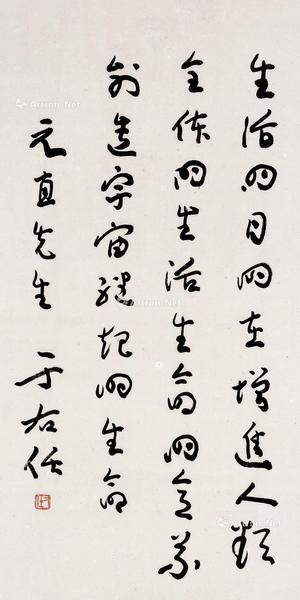 生活的目的在增進人類
全体的生活生命的意義
創造宇宙繼起的生命
元直先生 于右任
Artron.Net